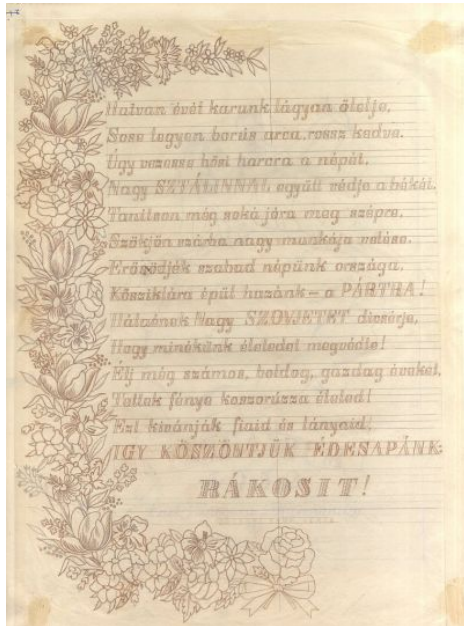 Hatvan évét karunk lágyan ölelje,
Sose legyen borús arca, rossz kedve.
Úgy vezesse hősi harcra a népét,
Nagy SZTÁLINNAL együtt védje a békét.
Tanítson még soká jóra meg szépre,
Szökjön szárba nagy munkája vetése.
Erősödjék szabad népünk országa,
Kősziklára épül hazánk – a PÁRTRA!
Hálaének Nagy SZOVJETET dicsérje,
Hogy minékünk életedet megvédte!
Élj még számos, boldog, gazdag éveket,
Tettek fénye koszorúzza életed!
Ezt kívánják fiaid és lányaid,
IGY KÖSZÖNTJÜK ÉDESAPÁNK
RÁKOSIT!